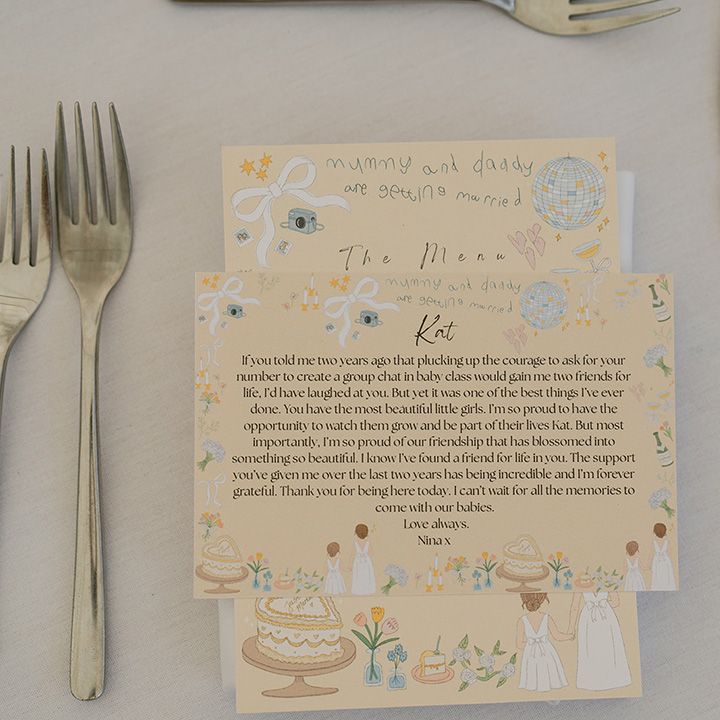 mummy and daddy
are getting married
The Menu
mummy and daddy
are getting married
Kat
If you told me two years ago that plucking up the courage to ask for your
number to create a group chat in baby class would gain me two friends for
life, I'd have laughed at you. But yet it was one of the best things I've ever
done. You have the most beautiful little girls. I'm so proud to have the
opportunity to watch them grow and be part of their lives Kat. But most
importantly, I'm so proud of our friendship that has blossomed into
something so beautiful. I know I've found a friend for life in you. The support
you've given me over the last two years has being incredible and I'm forever
grateful. Thank you for being here today. I can't wait for all the memories to
come with our babies.
Love always.
Nina x